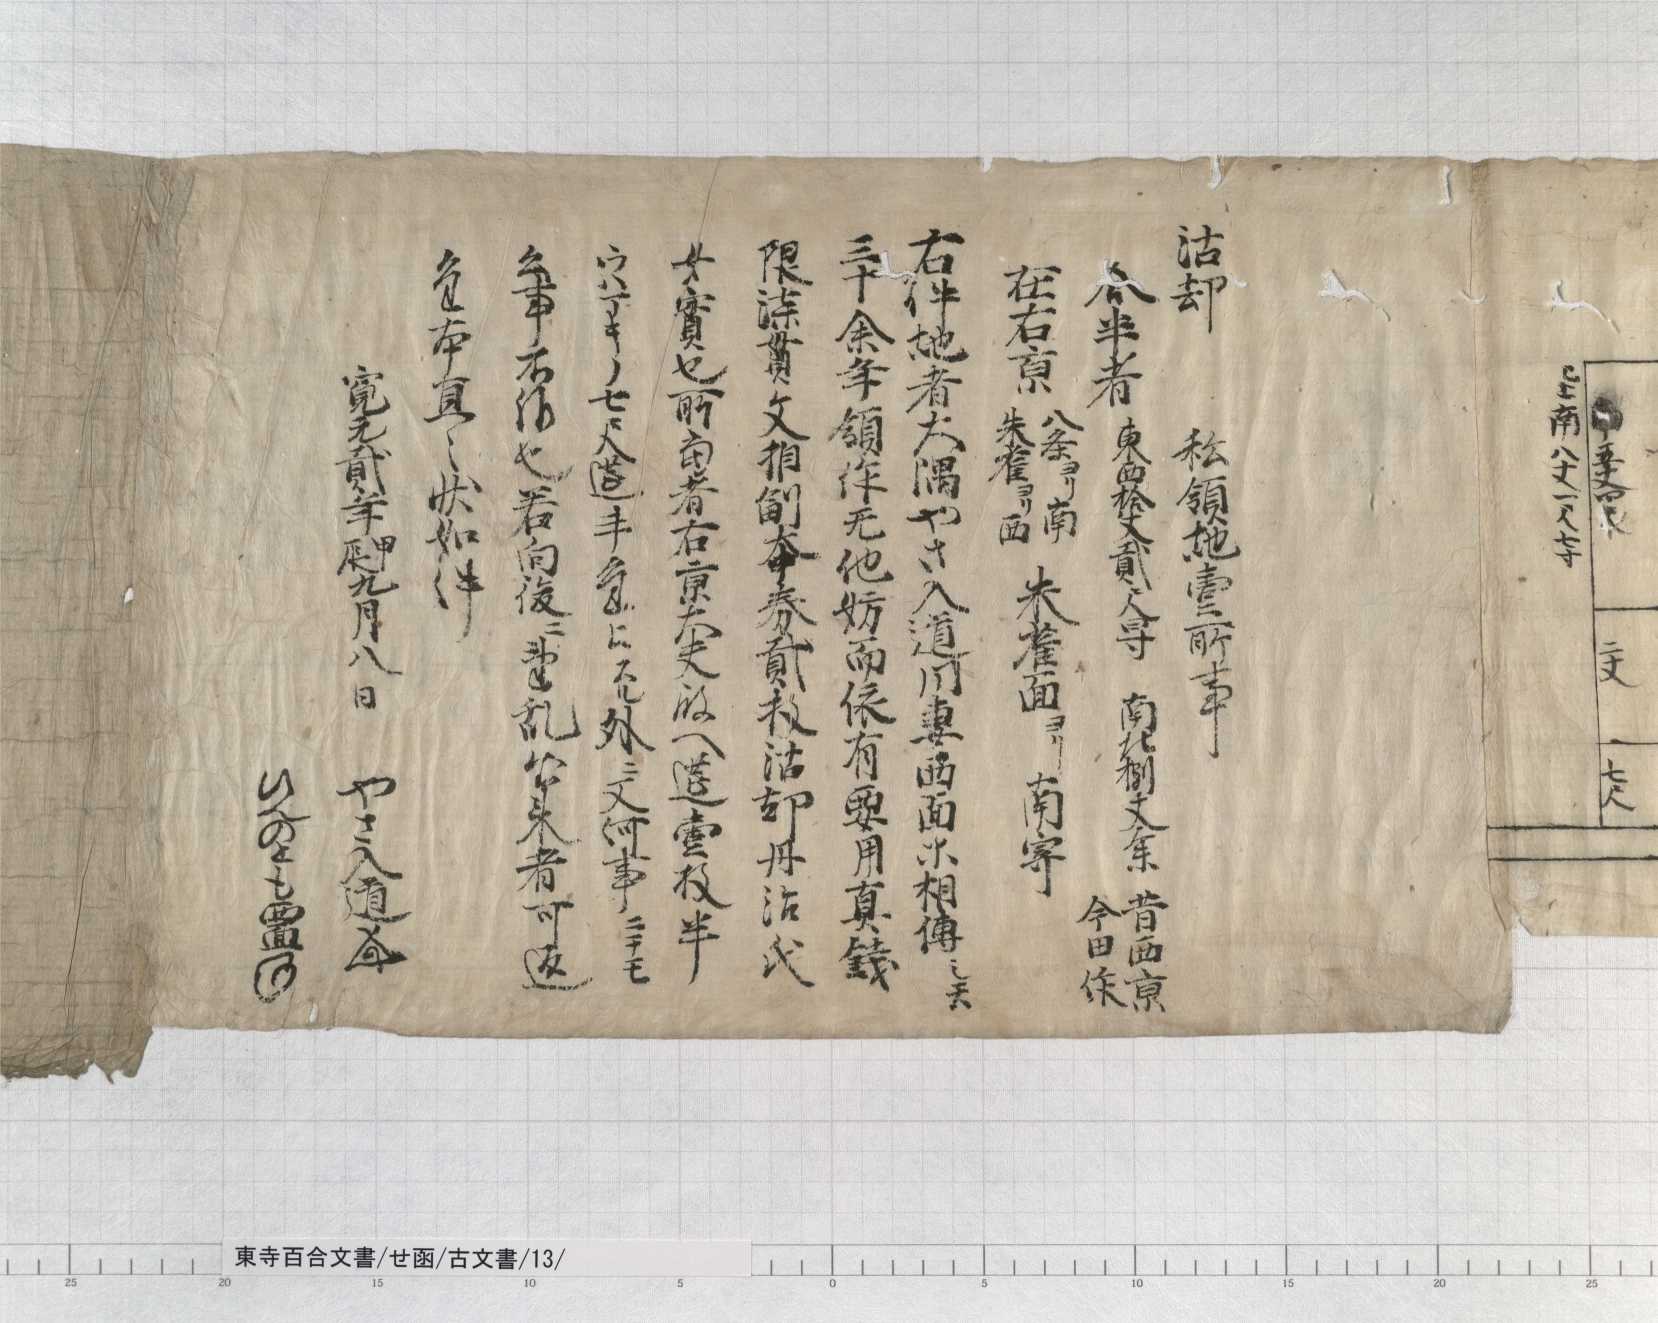 五丈四尺
二丈
七尺
已上南八丈一尺七寸
沽却　私領地壹所事
合半者　東西拾丈貳尺　南北捌丈余　昔西京
今田作
在右京　八条ヨリ南　朱雀面ヨリ南寄
朱雀ヨリ西
右件地者大隅やさ入道同妻西面ホ相傳之天
三十余年領作无他妨而依有要用直錢
限柒貫文相副本券貳枚沽却丹治氏
女實也所當者右京大夫殿へ莚壹枚半
七尺莚半外ニ文何事
事不候也若向後ニ違乱出来者可返
本直之状如件
寛元貳年甲辰九月八日　やさ入道
東寺百合文書/せ函/古文書/13/
25 20 15 10 5 0 5 10 15 20 25